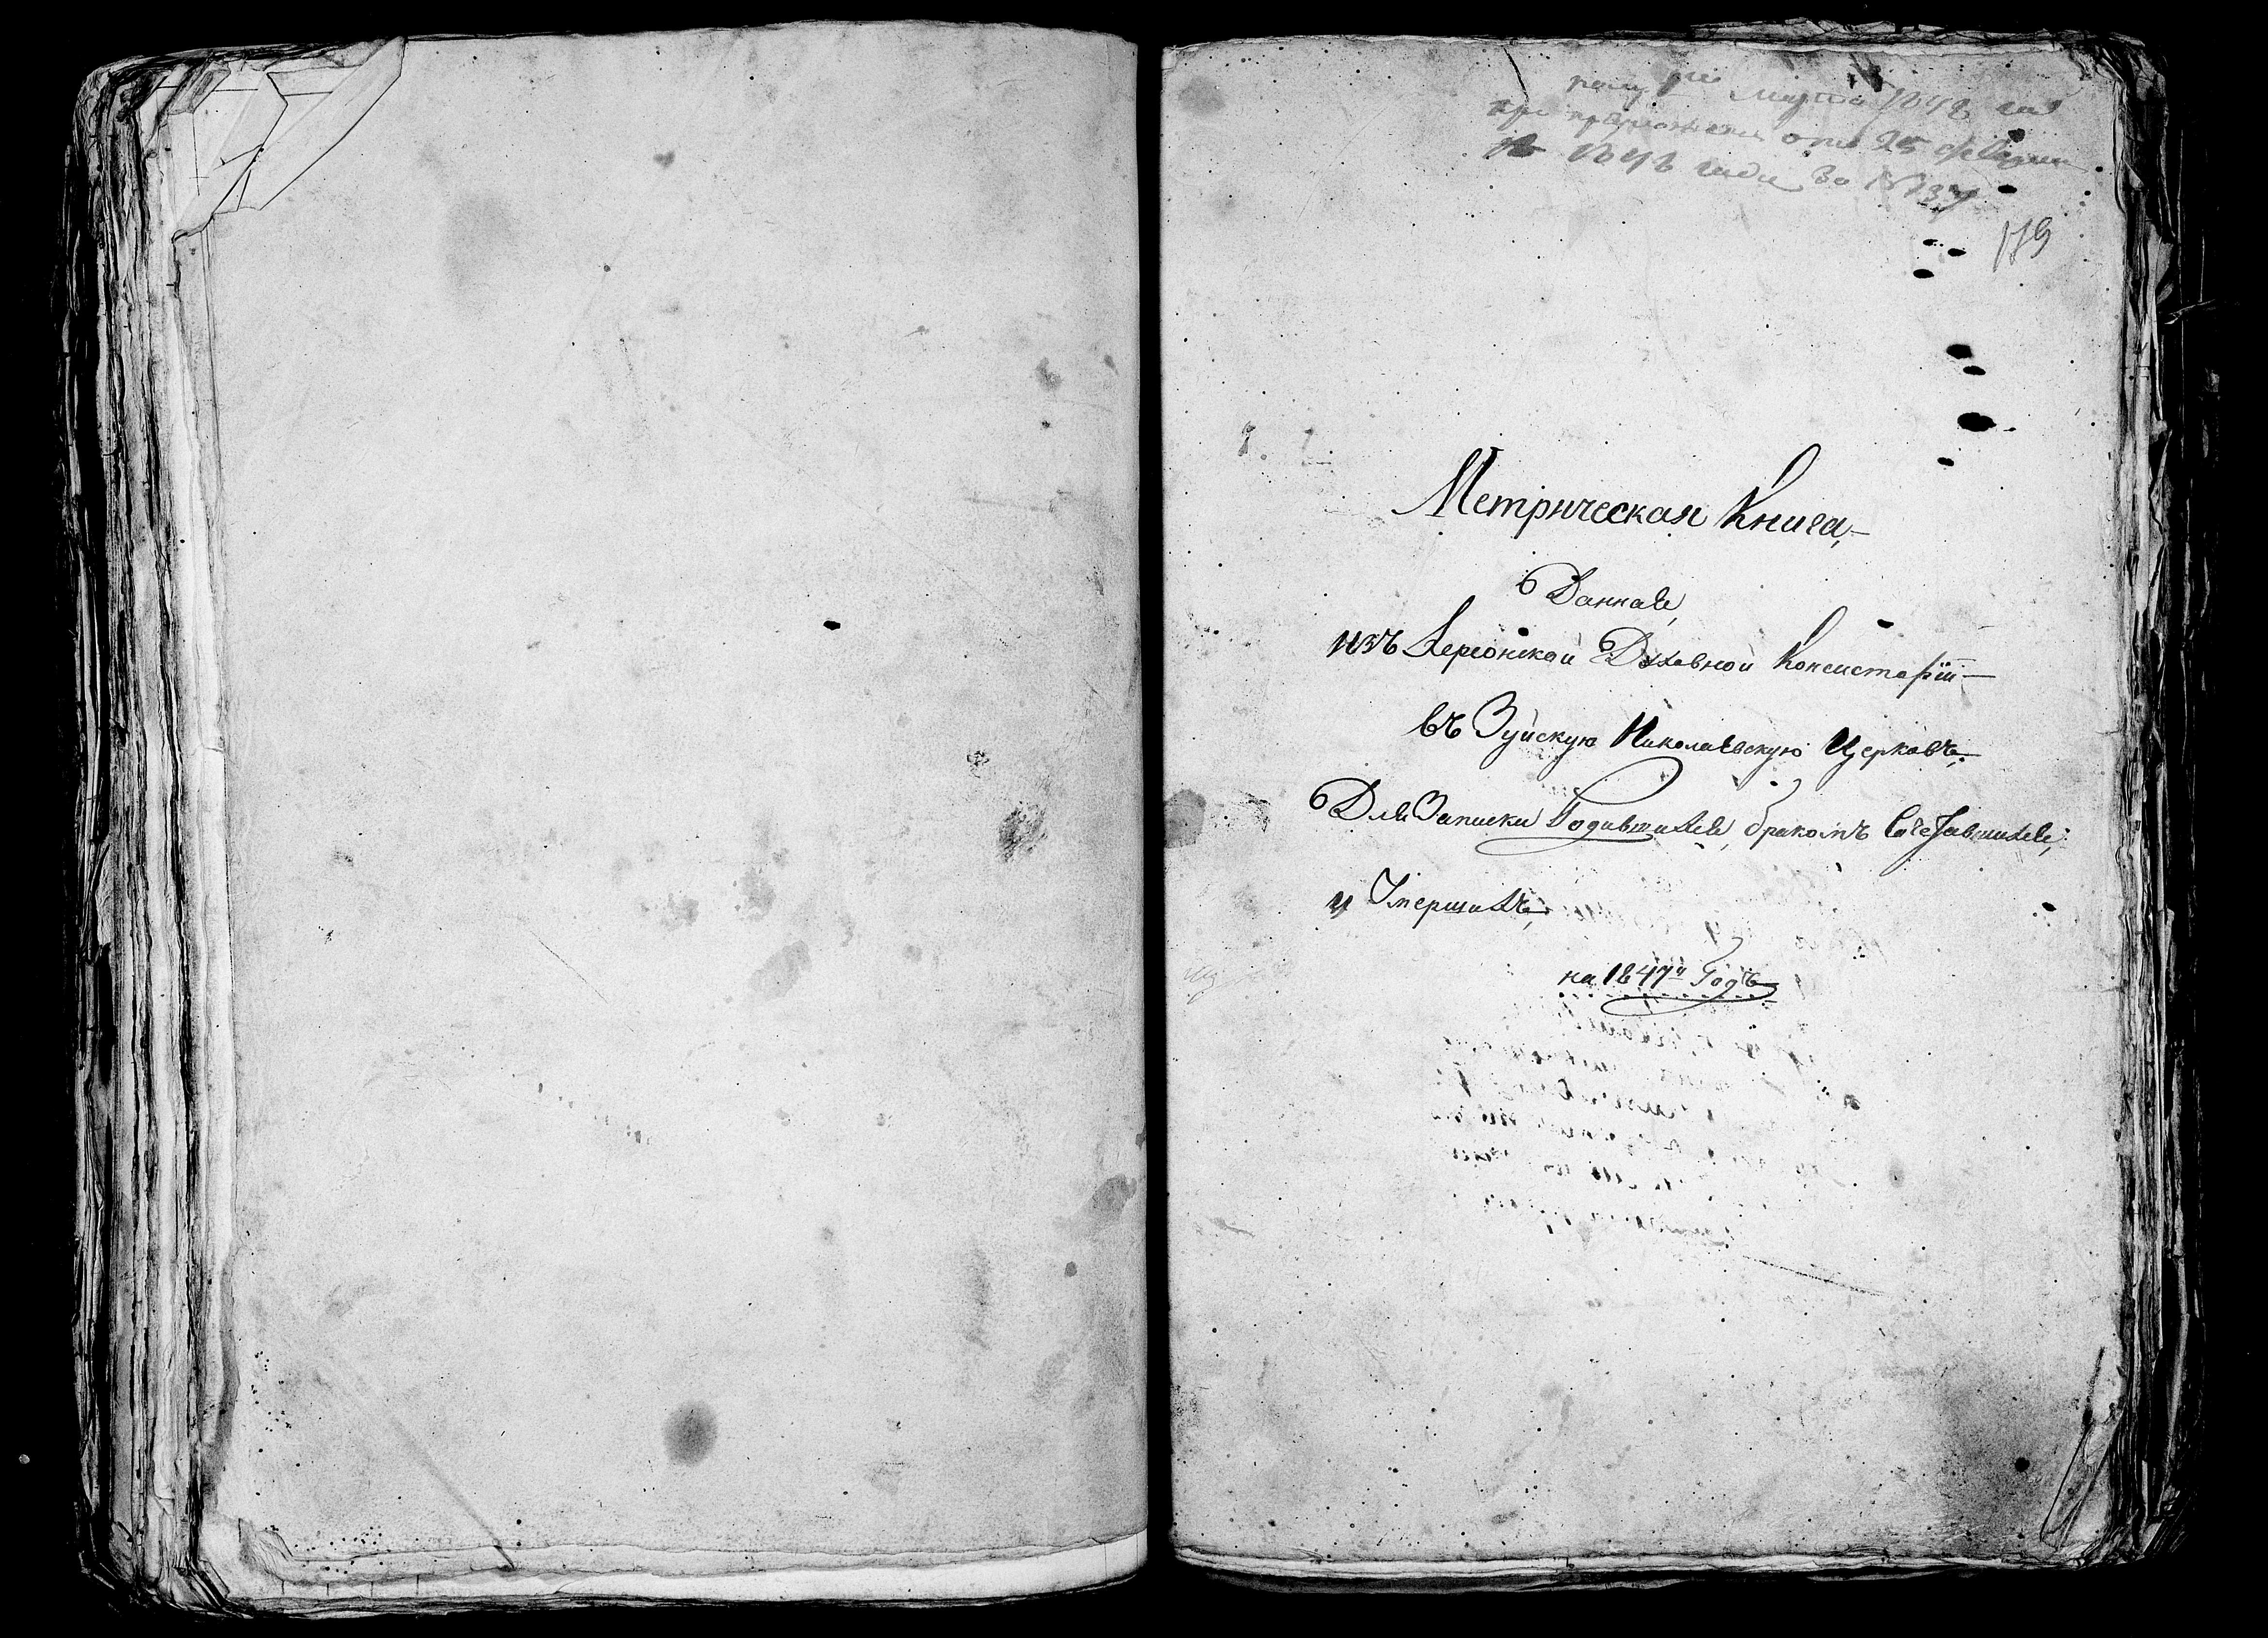 Марта 1848 год
при отъ 25 февраля
1848 года за № 37
119
Метрическая Книга,
Данная,
изъ Херсонской Духовной Консисторіи
въ Зуйскую Николаевскую Церковь,
Для Записки Родившихся, бракомъ Сочетавшихся,
и Умершихъ,
на 1847й Годъ